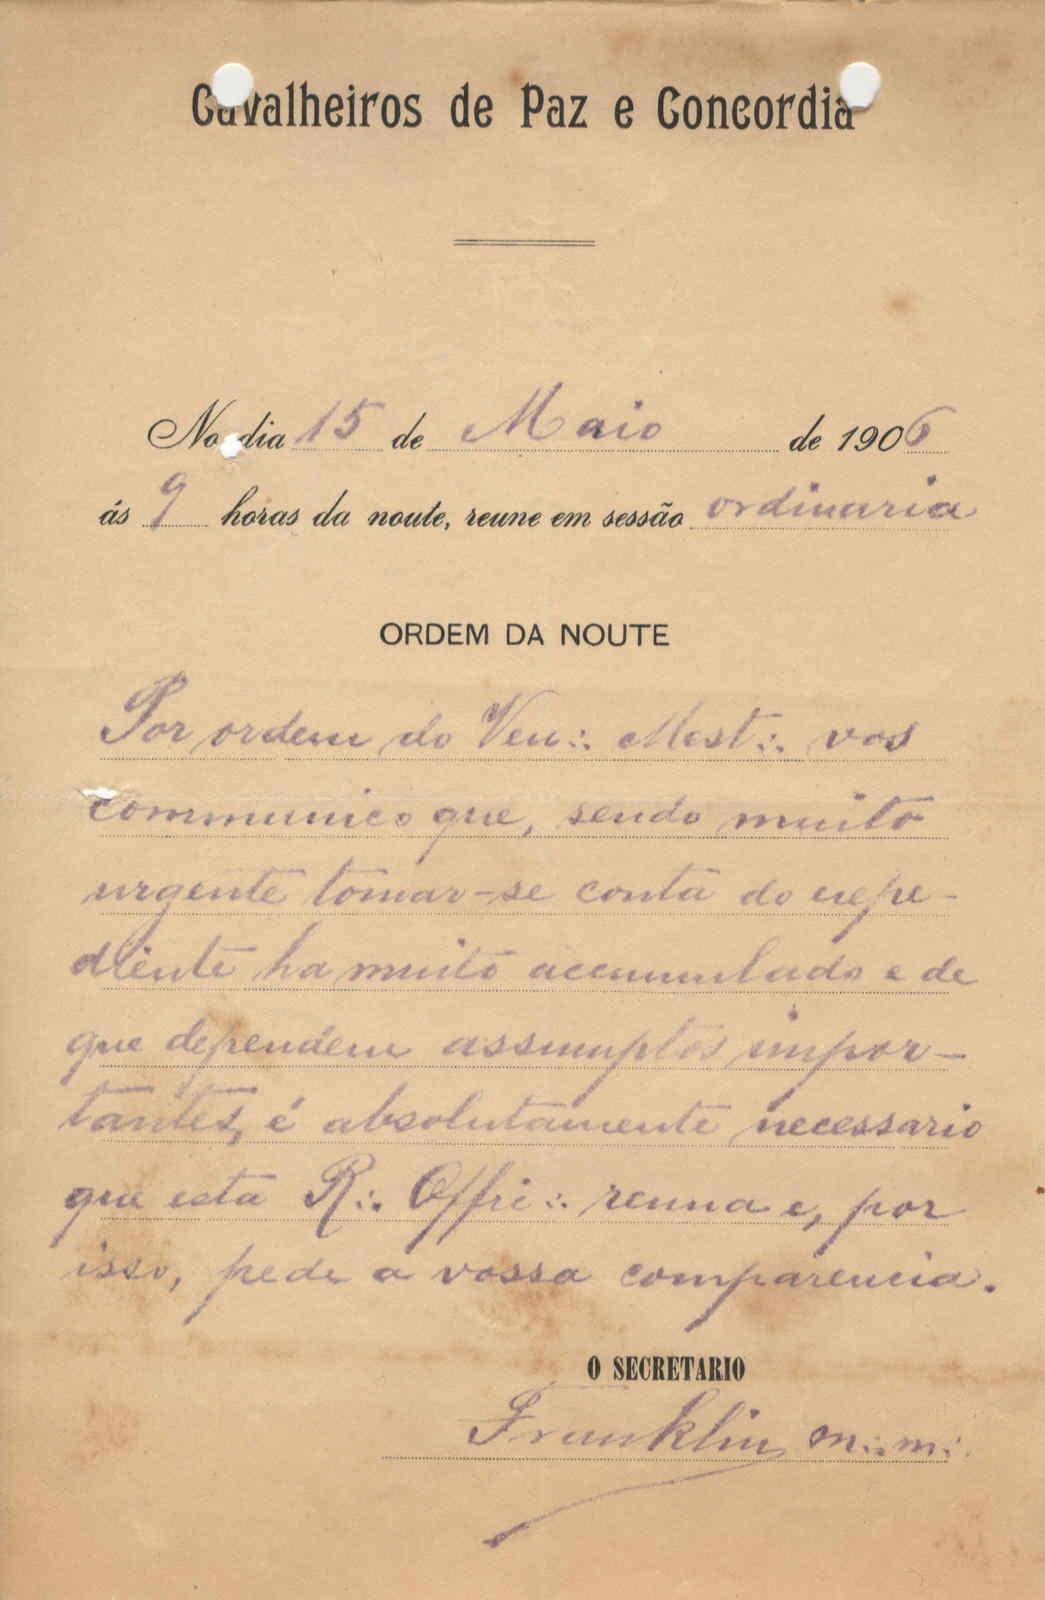 Cavalheiros de Paz e Concordia
No dia 15 de Maio de 1906
ás 9 horas da noute, reune em sessão ordinaria
ORDEM DA NOUTE
Por ordem do Ven∴ Mest∴ vos
communico que, sendo muito
urgente tomar-se conta do expe-
diente ha muito accumulado e de
que dependem assumptos impor-
tantes, é absolutamente necessario
que esta R∴ Offi∴ reuna e, por
isso, pede a vossa comparencia.
O SECRETARIO
Franklin m∴m∴